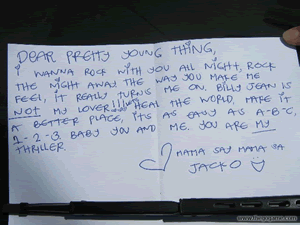 DEAR PRETTY YOUNG THING,
I WANNA ROCK WITH YOU ALL NIGHT, ROCK
THE NIGHT AWAY. THE WAY YOU MAKE ME
FEEL, IT REALLY TURNS ME ON. BILLY JEAN IS
NOT MY LOVER!!! LET'S HEAL THE WORLD, MAKE IT
A BETTER PLACE, ITS AS EASY AS A-B-C,
1-2-3 BABY YOU AND ME. YOU ARE MY
THRILLER.
MAMA SAY MAMA SA
JACKO
www.thegagames.com